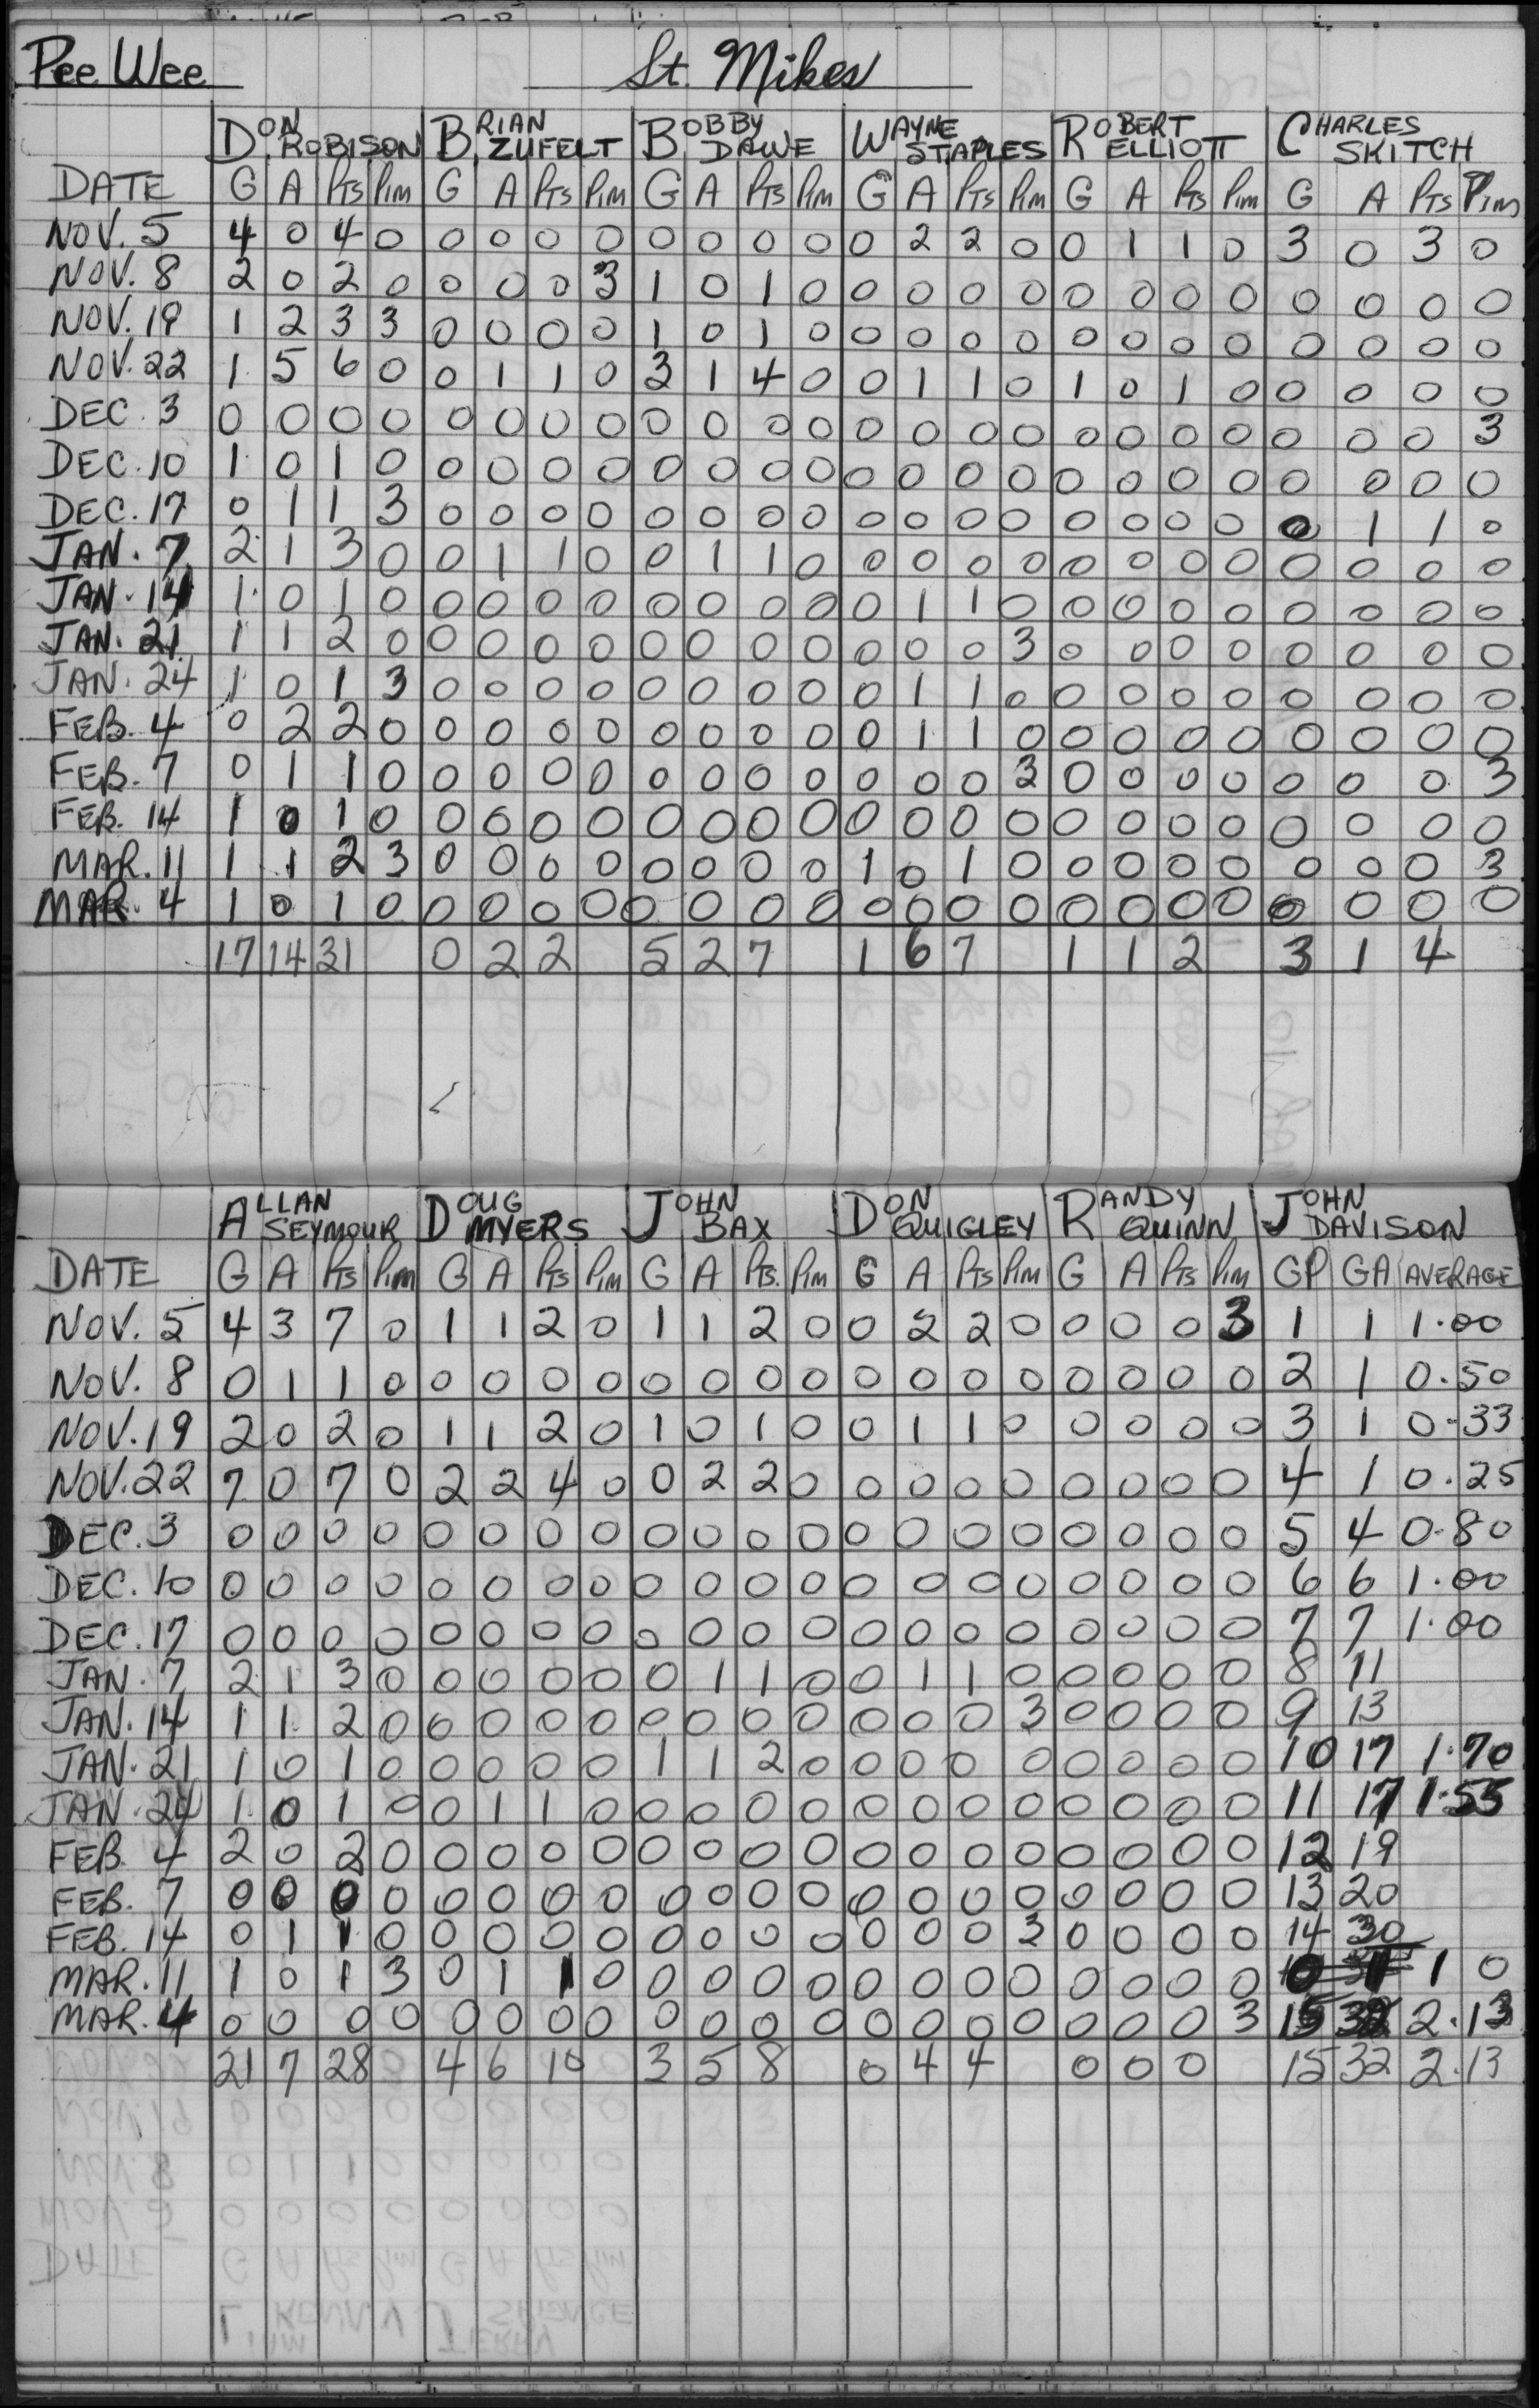 Pee Wee St. Mikes
DON ROBISON BRIAN ZUFELT BOBBY DAWE WAYNE STAPLES ROBERT ELLIOTT CHARLES SKITCH
DATE G A Pts Pim G A Pts Pim G A Pts Pim G A Pts Pim G A Pts Pim G A Pts Pim
NOV. 5 4 0 4 0 0 0 0 0 0 0 0 0 0 2 2 0 0 1 1 0 3 0 3 0
NOV. 8 2 0 2 0 0 0 0 3 1 0 1 0 0 0 0 0 0 0 0 0 0 0 0 0
NOV. 19 1 2 3 3 0 0 0 0 1 0 1 0 0 0 0 0 0 0 0 0 0 0 0 0
NOV. 22 1 5 6 0 0 1 1 0 3 1 4 0 0 1 1 0 1 0 1 0 0 0 0 0
DEC. 3 0 0 0 0 0 0 0 0 0 0 0 0 0 0 0 0 0 0 0 0 0 0 0 3
DEC. 10 1 0 1 0 0 0 0 0 0 0 0 0 0 0 0 0 0 0 0 0 0 0 0 0
DEC. 17 0 1 1 3 0 0 0 0 0 0 0 0 0 0 0 0 0 0 0 0 0 1 1 0
JAN. 7 2 1 3 0 0 1 1 0 0 1 1 0 0 0 0 0 0 0 0 0 0 0 0 0
JAN. 14 1 0 1 0 0 0 0 0 0 0 0 0 0 1 1 0 0 0 0 0 0 0 0 0
JAN. 21 1 1 2 0 0 0 0 0 0 0 0 0 0 0 0 3 0 0 0 0 0 0 0 0
JAN. 24 1 0 1 3 0 0 0 0 0 0 0 0 0 1 1 0 0 0 0 0 0 0 0 0
FEB. 4 0 2 2 0 0 0 0 0 0 0 0 0 0 1 1 0 0 0 0 0 0 0 0 0
FEB. 7 0 1 1 0 0 0 0 0 0 0 0 0 0 0 0 3 0 0 0 0 0 0 0 3
FEB. 14 1 0 1 0 0 0 0 0 0 0 0 0 0 0 0 0 0 0 0 0 0 0 0 0
MAR. 11 1 1 2 3 0 0 0 0 0 0 0 0 1 0 1 0 0 0 0 0 0 0 0 3
MAR. 4 1 0 1 0 0 0 0 0 0 0 0 0 0 0 0 0 0 0 0 0 0 0 0 0
17 14 31 0 2 2 5 2 7 1 6 7 1 1 2 3 1 4
ALLAN SEYMOUR DOUG MYERS JOHN BAX DON QUIGLEY RANDY QUINN JOHN DAVISON
DATE G A Pts Pim G A Pts Pim G A Pts. Pim G A Pts Pim G A Pts Pim GP GA AVERAGE
NOV. 5 4 3 7 0 1 1 2 0 1 1 2 0 0 2 2 0 0 0 0 3 1 1 1.00
NOV. 8 0 1 1 0 0 0 0 0 0 0 0 0 0 0 0 0 0 0 0 0 2 1 0.50
NOV. 19 2 0 2 0 1 1 2 0 1 0 1 0 0 1 1 0 0 0 0 0 3 1 0.33
NOV. 22 7 0 7 0 2 2 4 0 0 2 2 0 0 0 0 0 0 0 0 0 4 1 0.25
DEC. 3 0 0 0 0 0 0 0 0 0 0 0 0 0 0 0 0 0 0 0 0 5 4 0.80
DEC. 10 0 0 0 0 0 0 0 0 0 0 0 0 0 0 0 0 0 0 0 0 6 6 1.00
DEC. 17 0 0 0 0 0 0 0 0 0 0 0 0 0 0 0 0 0 0 0 0 7 7 1.00
JAN. 7 2 1 3 0 0 0 0 0 0 1 1 0 0 1 1 0 0 0 0 0 8 11
JAN. 14 1 1 2 0 0 0 0 0 0 0 0 0 0 0 0 3 0 0 0 0 9 13
JAN. 21 1 0 1 0 0 0 0 0 1 1 2 0 0 0 0 0 0 0 0 0 10 17 1.70
JAN. 24 1 0 1 0 0 1 1 0 0 0 0 0 0 0 0 0 0 0 0 0 11 17 1.55
FEB. 4 2 0 2 0 0 0 0 0 0 0 0 0 0 0 0 0 0 0 0 0 12 19
FEB. 7 0 0 0 0 0 0 0 0 0 0 0 0 0 0 0 0 0 0 0 0 13 20
FEB. 14 0 1 1 0 0 0 0 0 0 0 0 0 0 0 0 3 0 0 0 0 14 30
MAR. 11 1 0 1 3 0 1 1 0 0 0 0 0 0 0 0 0 0 0 0 0 1 0
MAR. 4 0 0 0 0 0 0 0 0 0 0 0 0 0 0 0 0 0 0 0 3 15 32 2.13
21 7 28 4 6 10 3 5 8 0 4 4 0 0 0 15 32 2.13